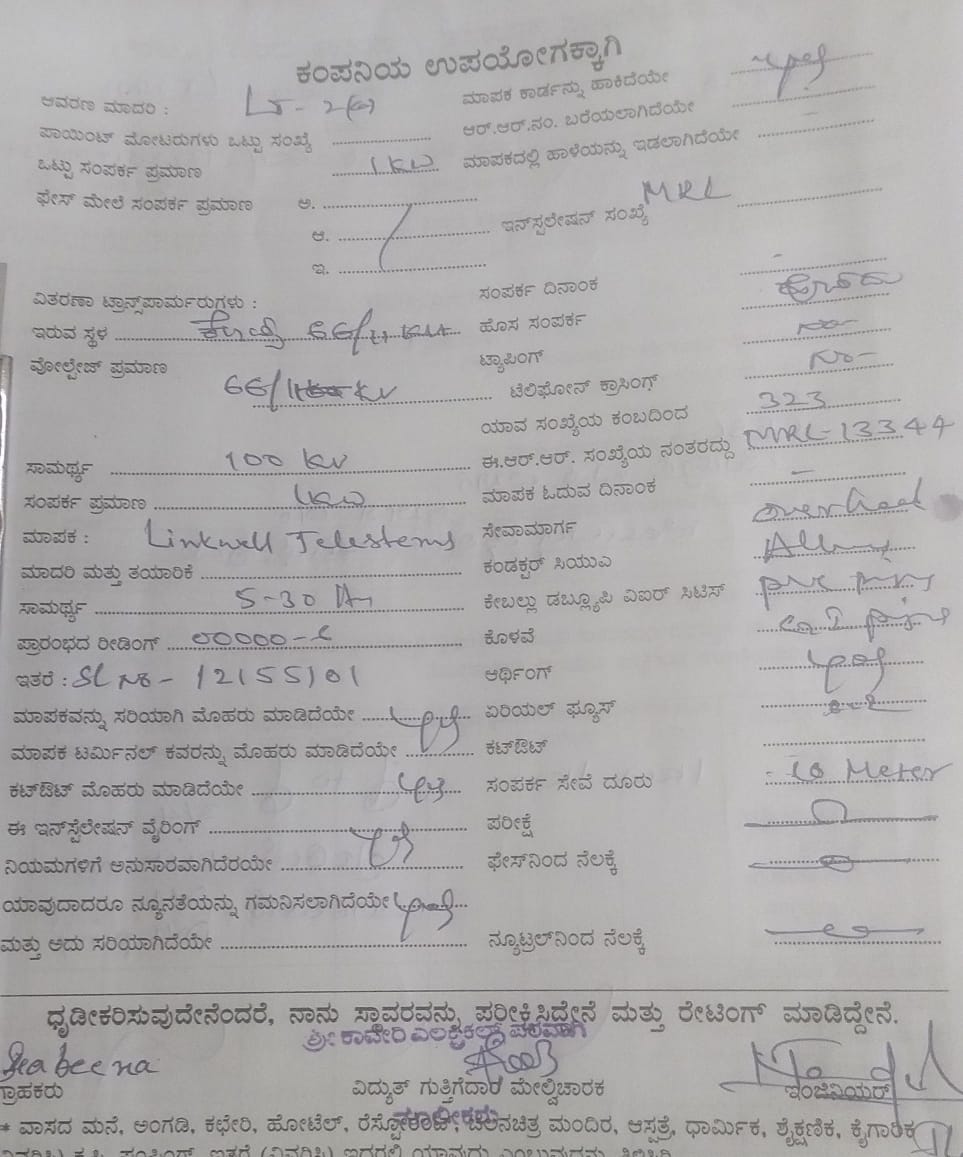 ಕಂಪನಿಯ ಉಪಯೋಗಕ್ಕಾಗಿ
ಆವರಣ ಮಾದರಿ : LT - 2(a) ಮಾಪಕ ಕಾರ್ಡನ್ನು ಹಾಕಿದೆಯೇ yes
ಪಾಯಿಂಟ್ ಮೋಟರುಗಳು ಒಟ್ಟು ಸಂಖ್ಯೆ ಆರ್.ಆರ್.ನಂ. ಬರೆಯಲಾಗಿದೆಯೇ
ಒಟ್ಟು ಸಂಪರ್ಕ ಪ್ರಮಾಣ 1KW ಮಾಪಕದಲ್ಲಿ ಹಾಳೆಯನ್ನು ಇಡಲಾಗಿದೆಯೇ
ಫೇಸ್ ಮೇಲೆ ಸಂಪರ್ಕ ಪ್ರಮಾಣ ಅ.
ಆ. ಇನ್‌ಸ್ಪಲೇಷನ್ ಸಂಖ್ಯೆ MRL
ಇ.
ವಿತರಣಾ ಟ್ರಾನ್ಸ್‌ಪಾರ್ಮರುಗಳು : ಸಂಪರ್ಕ ದಿನಾಂಕ -
ಇರುವ ಸ್ಥಳ 66/11 KV ಹೊಸ ಸಂಪರ್ಕ ಹೊಸದು
ವೋಲ್ಟೇಜ್ ಪ್ರಮಾಣ ಟ್ಯಾಪಿಂಗ್ No-
66/11 KV ಟೆಲಿಫೋನ್ ಕ್ರಾಸಿಂಗ್ No-
ಯಾವ ಸಂಖ್ಯೆಯ ಕಂಬದಿಂದ 323
ಸಾಮರ್ಥ್ಯ 100 KV ಈ.ಆರ್.ಆರ್. ಸಂಖ್ಯೆಯ ನಂತರದ್ದು MRL-13344
ಸಂಪರ್ಕ ಪ್ರಮಾಣ 1KW ಮಾಪಕ ಓದುವ ದಿನಾಂಕ -
ಮಾಪಕ : Linkwell Telestems ಸೇವಾಮಾರ್ಗ over head
ಮಾದರಿ ಮತ್ತು ತಯಾರಿಕೆ ಕಂಡಕ್ಟರ್ ಸಿಯುಎ Alloy
ಸಾಮರ್ಥ್ಯ 5-30 A ಕೇಬಲ್ಲು ಡಬ್ಲ್ಯೂಪಿ ವಿಐರ್ ಸಿಟಿಸ್ PVC
ಪ್ರಾರಂಭದ ರೀಡಿಂಗ್ 00000-0 ಕೊಳವೆ
ಇತರೆ : Sl No - 12155101 ಆರ್ಥಿಂಗ್ yes
ಮಾಪಕವನ್ನು ಸರಿಯಾಗಿ ಮೊಹರು ಮಾಡಿದೆಯೇ yes ಏರಿಯಲ್ ಫ್ಯೂಸ್
ಮಾಪಕ ಟರ್ಮಿನಲ್ ಕವರನ್ನು ಮೊಹರು ಮಾಡಿದೆಯೇ ಕಟ್‌ಔಟ್
ಕಟ್‌ಔಟ್ ಮೊಹರು ಮಾಡಿದೆಯೇ yes ಸಂಪರ್ಕ ಸೇವೆ ದೂರು 10 Meter
ಈ ಇನ್‌ಸ್ಟೆಲೇಷನ್ ವೈರಿಂಗ್ ಪರೀಕ್ಷೆ
ನಿಯಮಗಳಿಗೆ ಅನುಸಾರವಾಗಿದೆರಯೇ yes ಫೇಸ್‌ನಿಂದ ನೆಲಕ್ಕೆ
ಯಾವುದಾದರೂ ನ್ಯೂನತೆಯನ್ನು ಗಮನಿಸಲಾಗಿದೆಯೇ yes
ಮತ್ತು ಅದು ಸರಿಯಾಗಿದೆಯೇ ನ್ಯೂಟ್ರಲ್‌ನಿಂದ ನೆಲಕ್ಕೆ
ಧೃಡೀಕರಿಸುವುದೇನೆಂದರೆ, ನಾನು ಸ್ಥಾವರವನ್ನು ಪರೀಕ್ಷಿಸಿದ್ದೇನೆ ಮತ್ತು ರೇಟಿಂಗ್ ಮಾಡಿದ್ದೇನೆ.
ಶ್ರೀ ಕಾವೇರಿ ಎಲೆಕ್ಟ್ರಿಕಲ್ಸ್ ಪರವಾಗಿ
Seabeena
ಗ್ರಾಹಕರು ವಿದ್ಯುತ್ ಗುತ್ತಿಗೆದಾರ ಮೇಲ್ವಿಚಾರಕ ಇಂಜಿನಿಯರ್
ಮಾಲೀಕರು
* ವಾಸದ ಮನೆ, ಅಂಗಡಿ, ಕಛೇರಿ, ಹೋಟೆಲ್, ರೆಸ್ಟೋರೆಂಟ್, ಚಲನಚಿತ್ರ ಮಂದಿರ, ಆಸ್ಪತ್ರೆ, ಧಾರ್ಮಿಕ, ಶೈಕ್ಷಣಿಕ, ಕೈಗಾರಿಕ